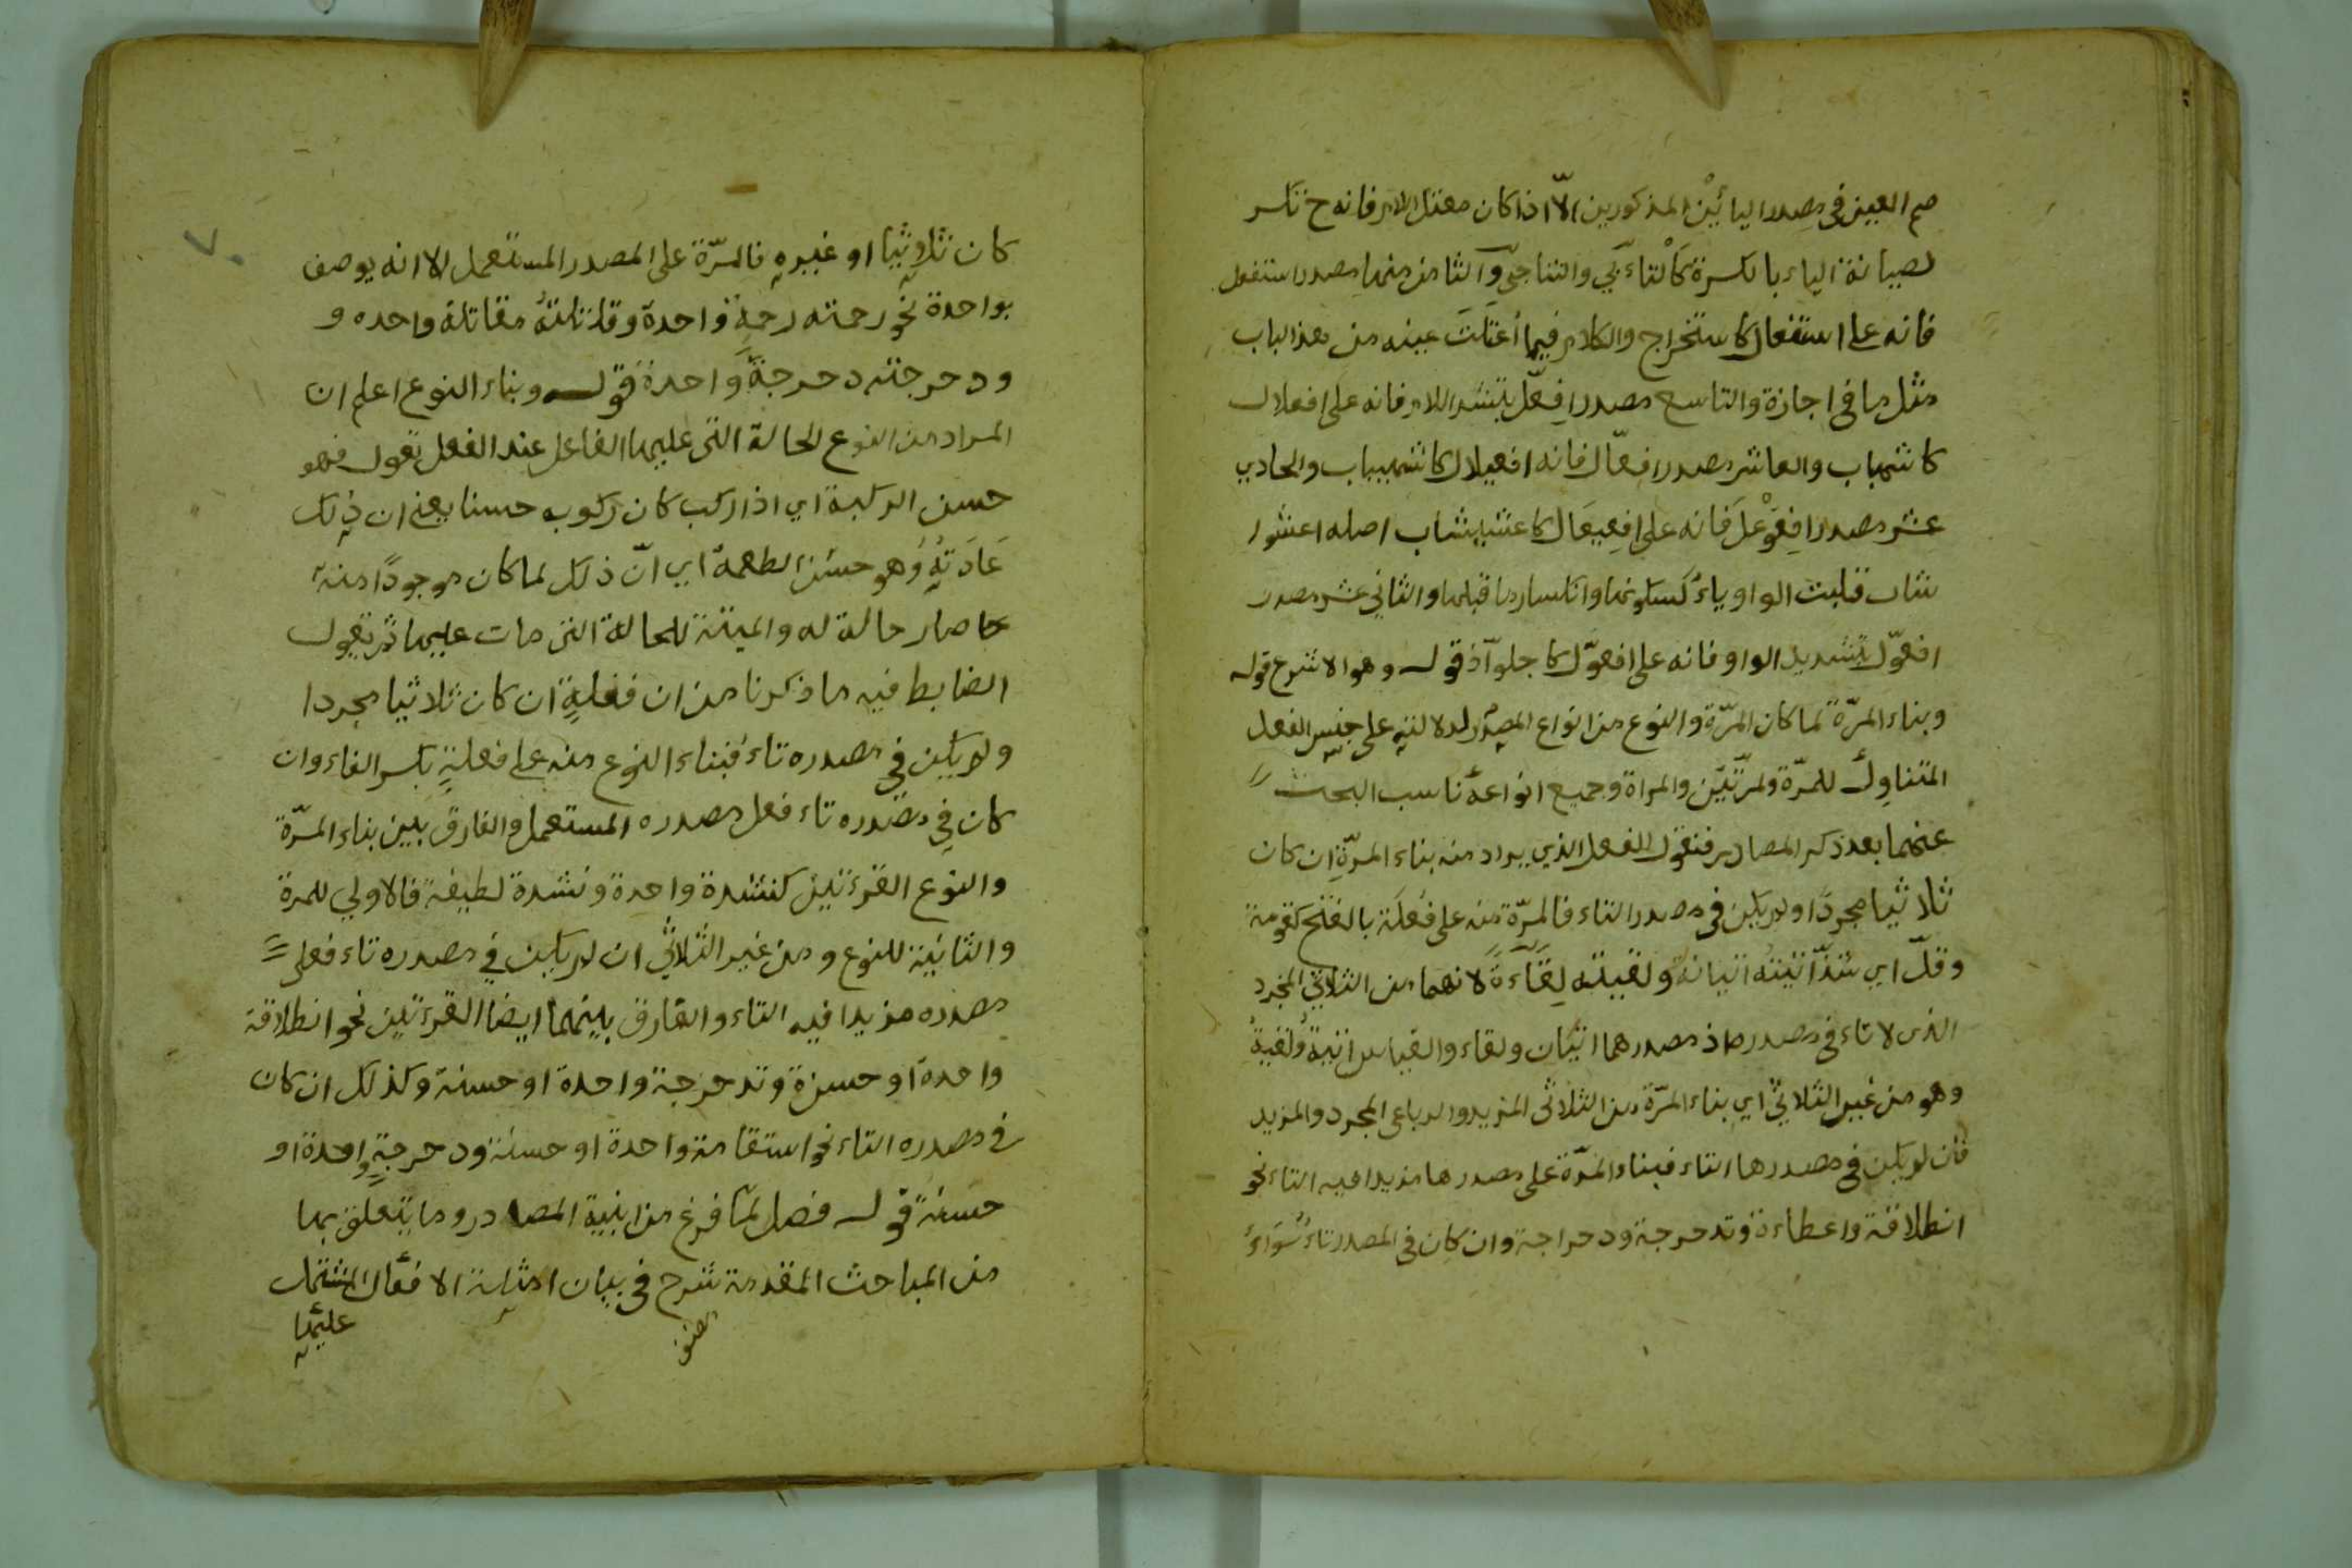 ضم العين في مصدر اليائين المذكورين الا اذا كان معتل اللام فانه ح تكسر
لصيانة الياء بالكسرة كالتاءبي والتناجي والثامن منها مصدر استفعل
فانه على استفعال كاستخراج والكلام فيما اعتلت عينه من هذا الباب
مثل ما في اجازة والتاسع مصدر افعلّ بتشد اللام فانه على افعلال
كاشهباب والعاشر مصدر افعالّ فانه افعيلال كاشهيباب والحادي
عشر مصدر افعوعل فانه على افعيعال كاعشيشاب اصله اعشو
شاب قلبت الواو ياء لسكونها وانكسار ما قبلها والثاني عشر مصدر
افعوّل بتشديد الواو فانه على افعوّال كاجلوّاذ قوله وهو الاشرع قوله
وبناء المرّة لما كان المرّة والنوع من انواع المصدر لدلالته على جنس الفعل
المتناول للمرّة ولمرّتين والمراة وجميع انواعه ناسب البحث
عنهما بعد ذكر المصادر فنقول الفعل الذي يراد منه بناء المرّة ان كان
ثلاثيا مجردا ولم يكن في مصدر التاء فالمرّة منه على فَعلَة بالفتح كقومة
وقلّ اي شذّ اتيته اتيانة ولقيته لِقَاءَةً لانهما من الثلاثي المجرد
الذى لا تاء في مصدره اذ مصدرهما اتيان ولقاء والقياس اتية ولقية
وهو من غير الثلاثي اي بناء المرّة من الثلاثى المزيد والرباعى المجرد والمزيد
فان لم يكن في مصدرها التاء فبناء المرّة على مصدرها مزيدا فيه التاء نحو
انطلاقة واعطاءة وتدحرجة ودحراجة وان كان في المصدر تاء سَوَاءٌ
٧٠
كان ثلاثيا او غيره فالمرّة على المصدر المستعمل الا انه يوصف
بواحدة نحو رحمته رحمة واحدة وقاتلته مقاتلة واحده و
ودحرجته دحرجة واحدة قوله وبناء النوع اعلم ان
المراد من النوع الحالة التى عليها الفاعل عند الفعل تقول فهو
حسن الركبة اي اذا ركب كان ركوبه حسنا يعني ان ذلك
عَادَتهُ وَهو حسن الطعمة اي انّ ذلك لما كان موجودًا منه
صار حالة له والميتة للحالة التى مات عليها ثم يقول
الضابط فيه ما ذكرنا من ان فعله ان كان ثلاثيا مجردا
ولم يكن في مصدره تاء فبناء النوع منه على فعلةٍ بكسر الفاء وان
كان في مصدره تاء فعل مصدره المستعمل والفارق بين بناء المرّة
والنوع القرءتين كنشدة واحدة ونشدة لطيفة فالاولي للمرة
والثانية للنوع ومن غير الثلاثي ان لم يكن في مصدره تاء فعلى
مصدره مزيدا فيه التاء والفارق بينهما ايضا القرءتين نحو انطلاقة
واحدة او حسنة وتدحرجة واحدة او حسنة وكذلك ان كان
في مصدره التاء نحو استقامة واحدة او حسنة ودحرجةٍ واحدة او
حسنة قوله فصل لمّا فرغ من ابنية المصادر وما يتعلق بها
من المباحث المقدمة شرح في بيان امثلة الافعال المشتمل
عليها